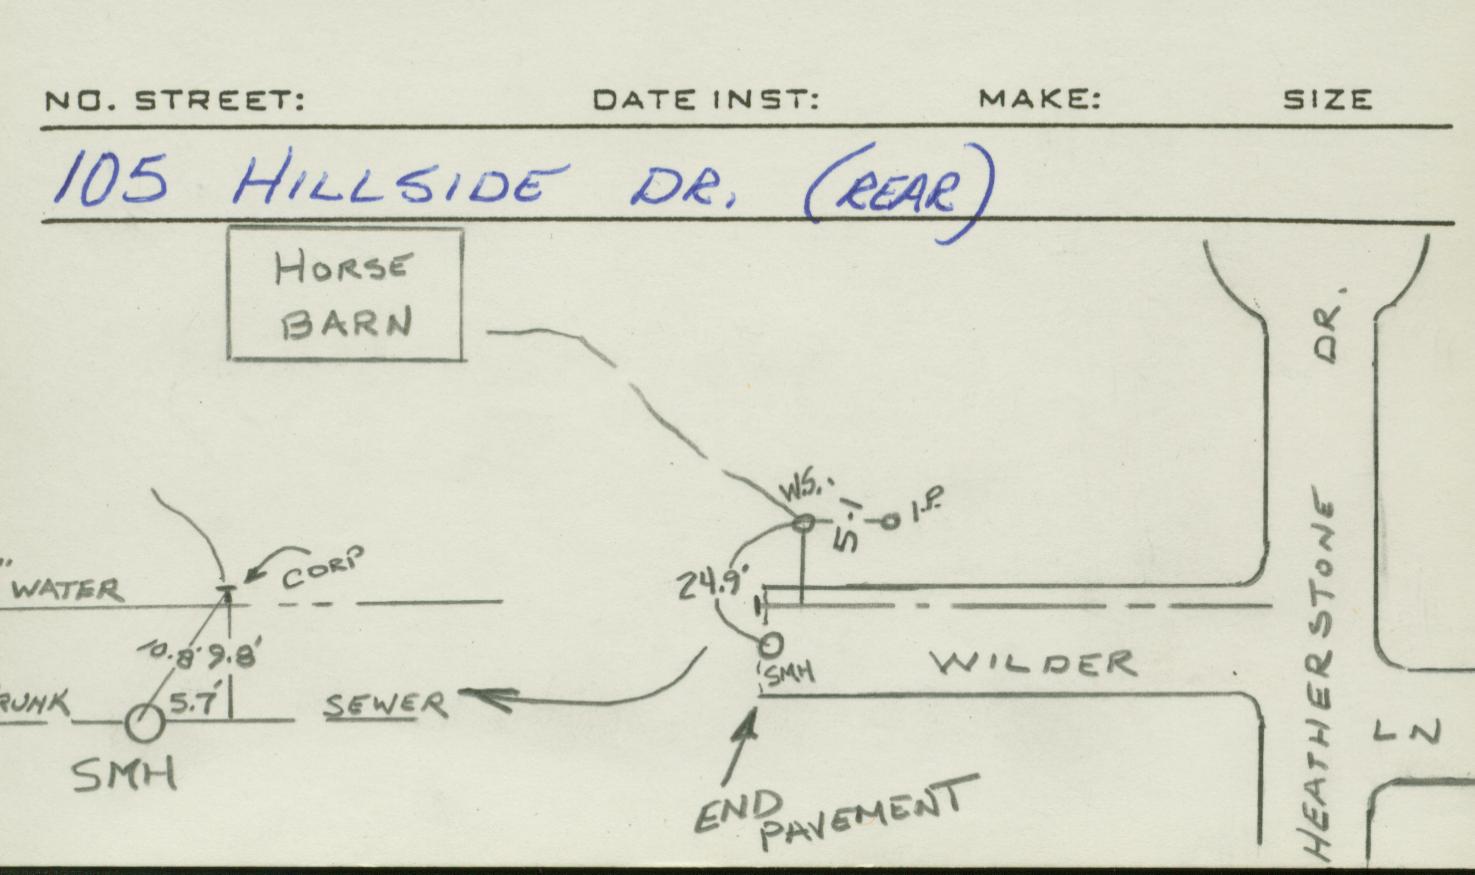 NO. STREET: DATE INST: MAKE: SIZE
105 HILLSIDE DR. (REAR)
HORSE
BARN
DR.
W.S.
5.1
I.P.
CORP
" WATER
24.9'
10.8' 9.8'
SMH
WILDER
HEATHERSTONE
RUNK
5.7'
SEWER
LN
SMH
END
PAVEMENT